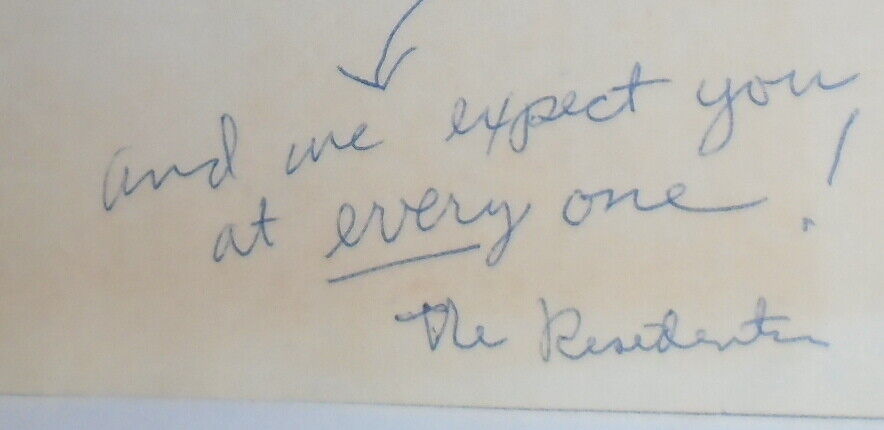 and we expect you
at every one!
The Residents